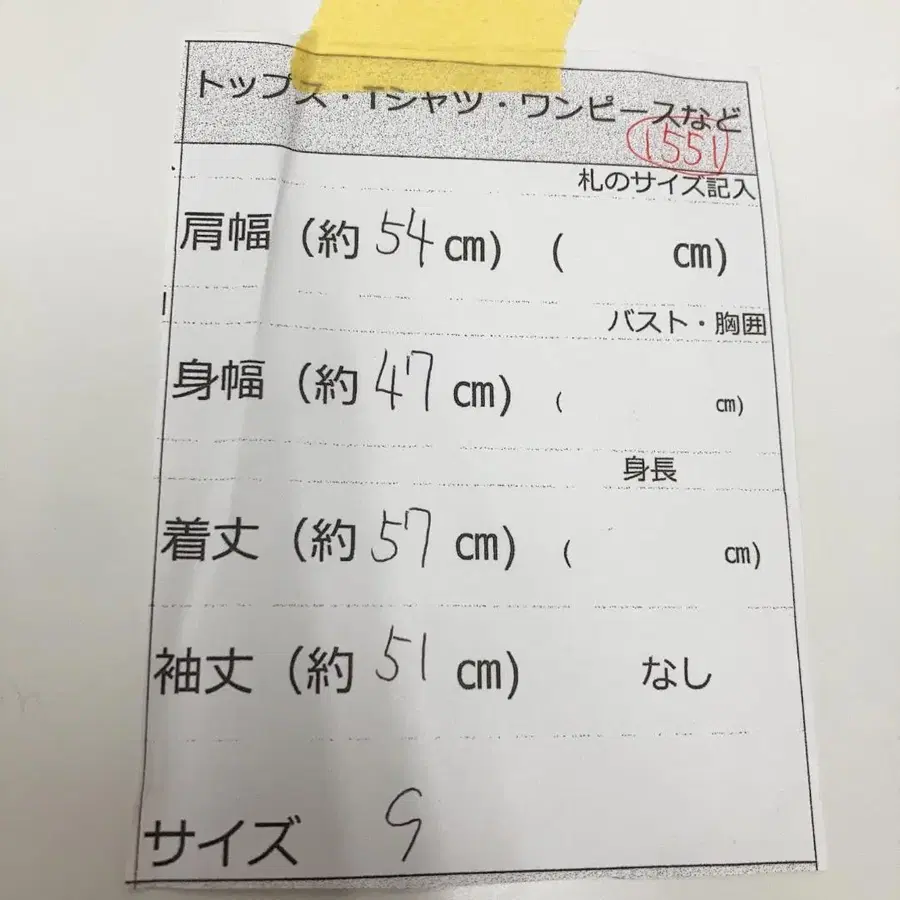 トップス・Tシャツ・ワンピースなど
1551
札のサイズ記入
肩幅 (約 54 cm) ( cm)
バスト・胸囲
身幅 (約 47 cm) ( cm)
身長
着丈 (約 57 cm) ( cm)
袖丈 (約 51 cm) なし
サイズ S